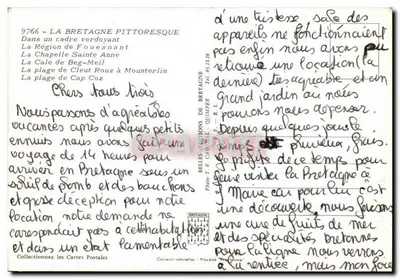 9766 - LA BRETAGNE PITTORESQUE
Dans un cadre verdoyant
La Région de Fouesnant
La Chapelle Sainte Anne
La Cale de Beg-Meil
La plage de Cleut Rouz à Mousterlin
La plage de Cap Coz
Chers tous trois
Nous passons d'agréables
vacances après quelques petits
ennuis nous avons fait un
voyage de 14 heures pour
arriver en Bretagne sous un
soleil de plomb et des bouchons
et grosse déception pour notre
location notre demande ne
correspondait pas à cette habitation
et dans un état lamentable
Collectionnez les Cartes Postales
d'une tristesse sale des
appareils ne fonctionnaient
pas enfin nous avons pu
retrouver une location (la
dernière) très agréable et un
grand jardin où nous
pouvons nous dépenser.
Depuis quelques jours le
temps pluvieux, frais.
profite de ce temps pour
faire venir la Bretagne à
Marie car pour lui c'est
une découverte, nous faisons
une cure de fruits de mer
et des spécialités bretonnes
pour la ligne nous verrons
à la rentrée, mais mon